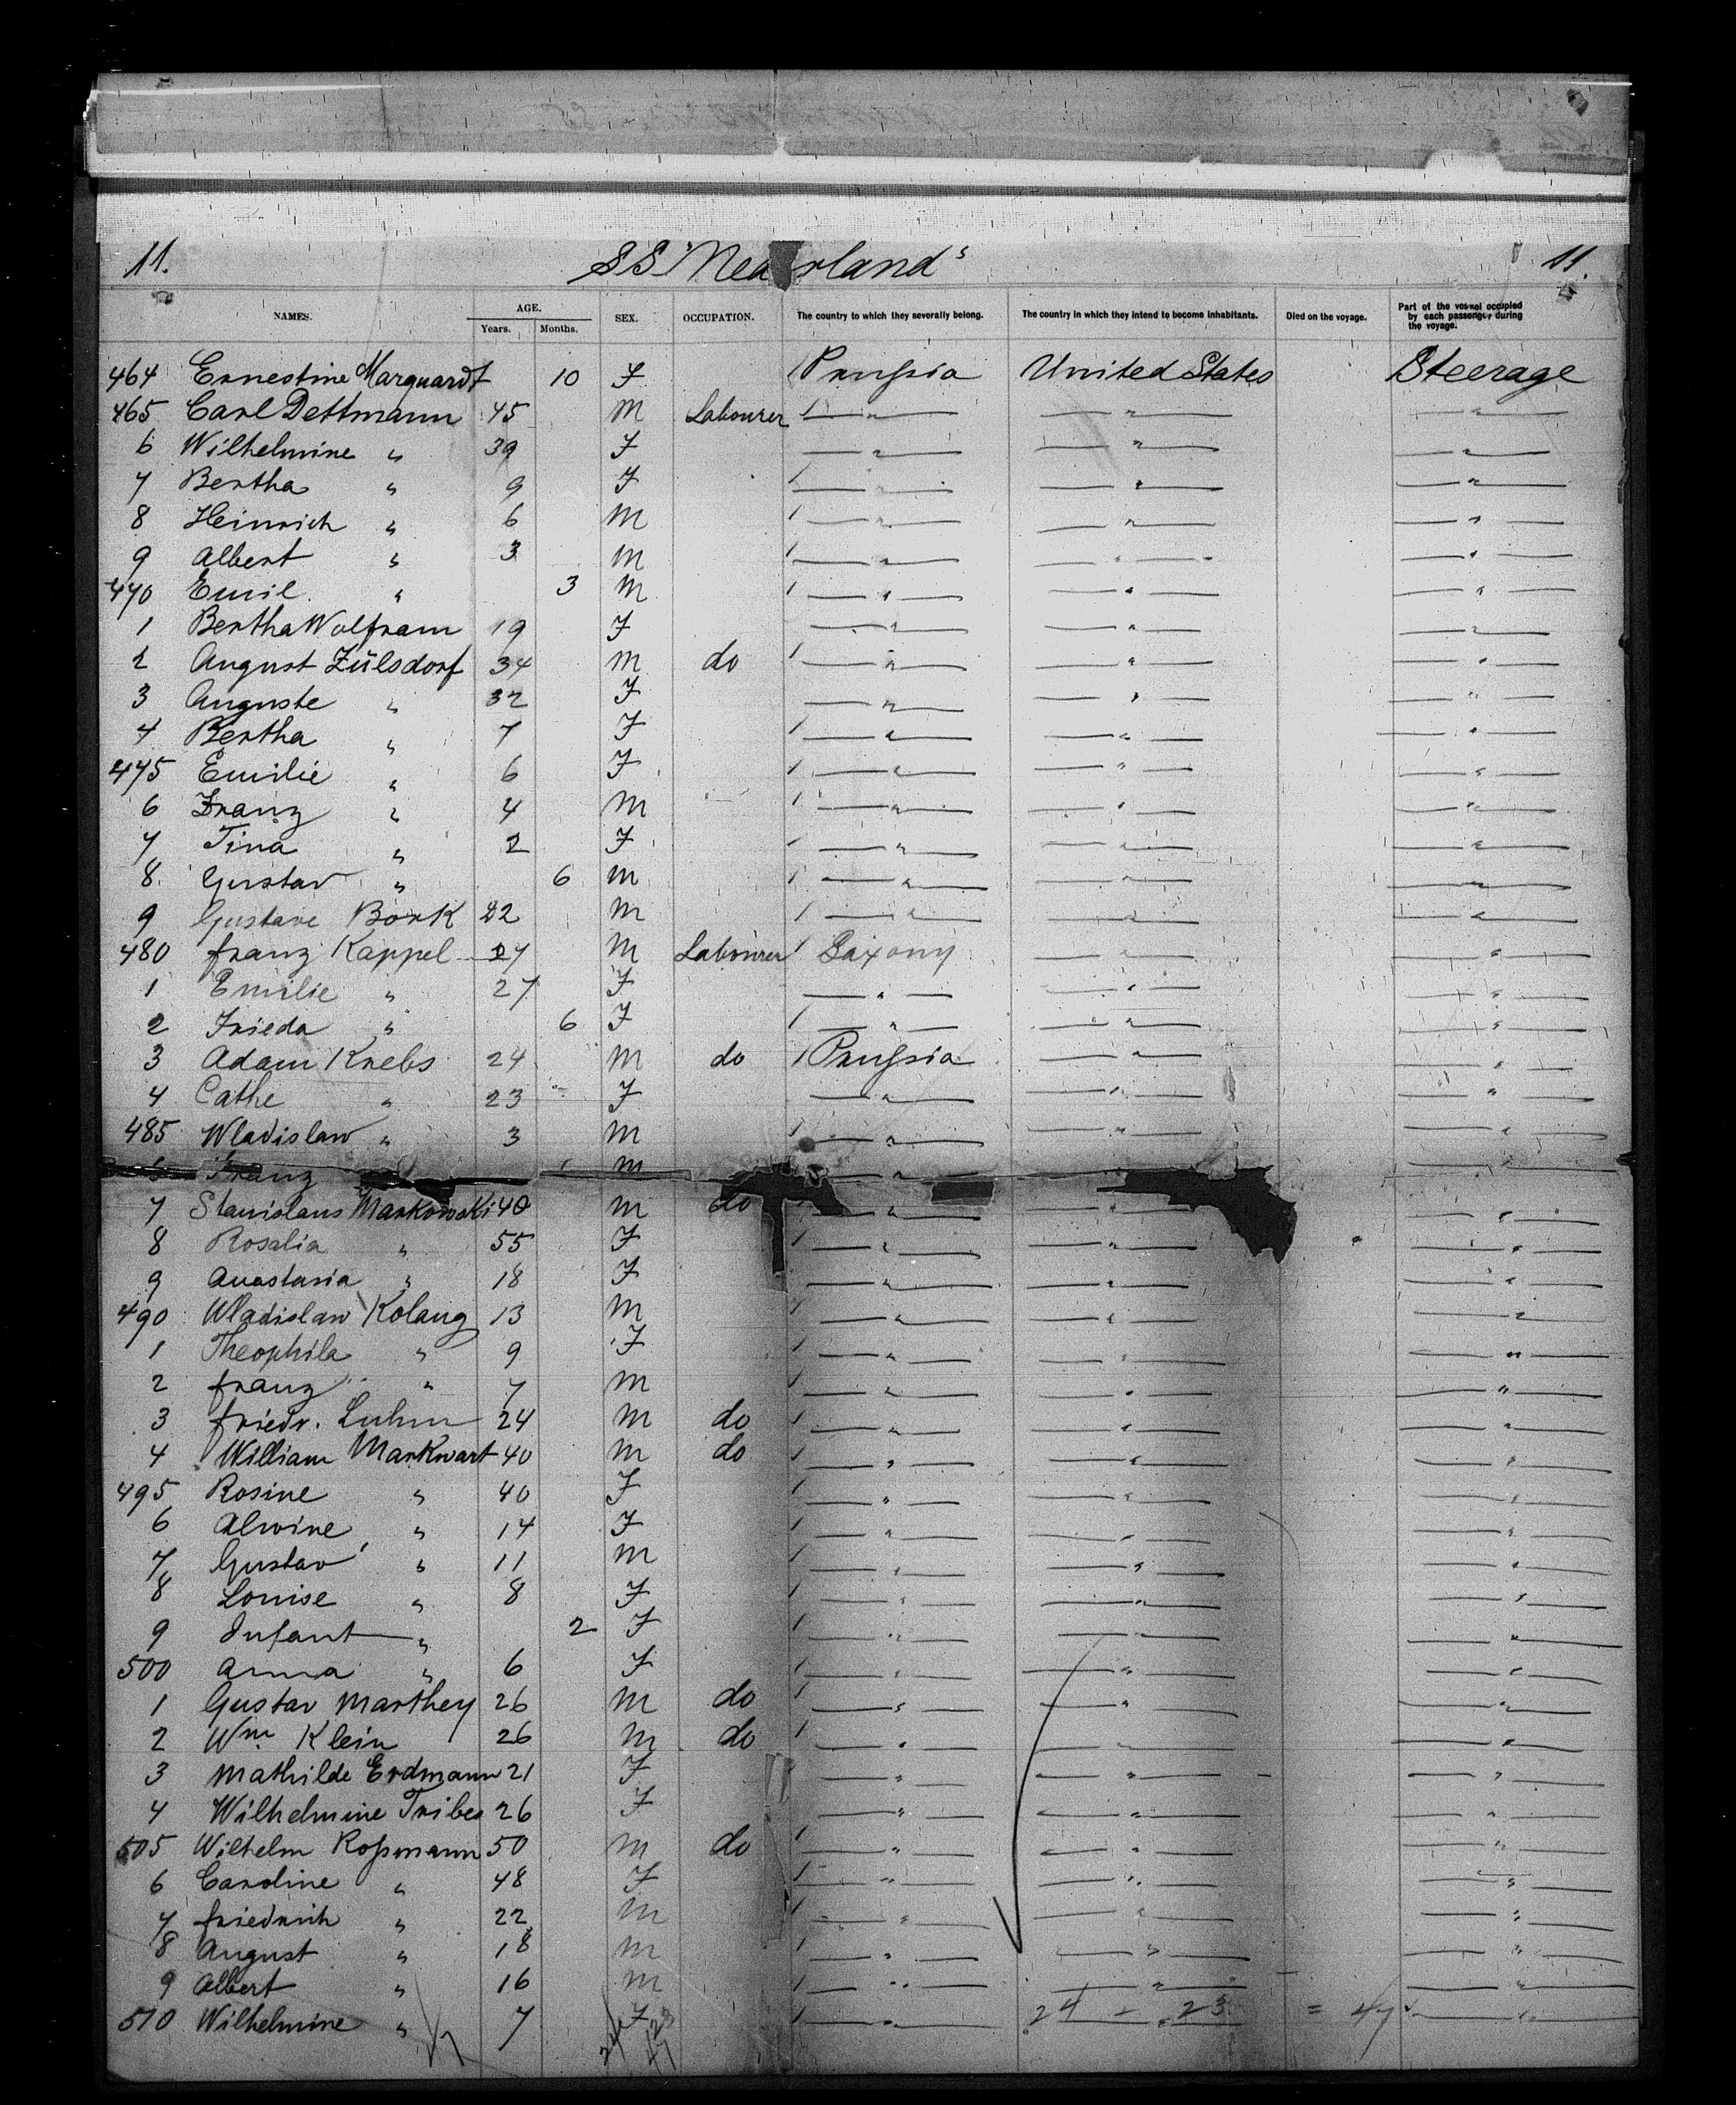 11. SS "Nederland" 11.
NAMES. AGE. Years. Months. SEX. OCCUPATION. The country to which they severally belong. The country in which they intend to become inhabitants. Died on the voyage. Part of the vessel occupied by each passenger during the voyage.
464 Ernestine Marquardt 10 F Prussia United States Steerage
465 Carl Dettmann 45 M Labourer " " "
6 Wilhelmine " 39 F " " "
7 Bertha " 9 F " " "
8 Heinrich " 6 M " " "
9 Albert " 3 M " " "
470 Emil " 3 M " " "
1 Bertha Wolfram 19 F " " "
2 August Zülsdorf 34 M do " " "
3 Auguste " 32 F " " "
4 Bertha " 7 F " " "
475 Emilie " 6 F " " "
6 Franz " 4 M " " "
7 Tina " 2 F " " "
8 Gustav " 6 M " " "
9 Gustave Bork 22 M " " "
480 Franz Kappel 27 M Labourer Saxony " "
1 Emilie " 27 F " " "
2 Frieda " 6 F " " "
3 Adam Krebs 24 M do Prussia " "
4 Cathe " 23 F " " "
485 Wladislaw " 3 M " " "
6 Franz M " "
7 Stanislaus Markowski 40 M do " " "
8 Rosalia " 55 F " " "
9 Anastasia " 18 F " " "
490 Wladislaw Kolang 13 M " " "
1 Theophila " 9 F " " "
2 Franz " 7 M " " "
3 Friedr. Luhm 24 M do " " "
4 William Markwart 40 M do " " "
495 Rosine " 40 F " " "
6 Alwine " 14 F " " "
7 Gustav " 11 M " " "
8 Louise " 8 F " " "
9 Infant " 2 F " " "
500 Anna " 6 F " " "
1 Gustav Marthey 26 M do " " "
2 Wm Klein 26 M do " " "
3 Mathilde Erdmann 21 F " " "
4 Wilhelmine Tribes 26 F " " "
505 Wilhelm Roßmann 50 M do " " "
6 Caroline " 48 F " " "
7 Friedrich " 22 M " " "
8 August " 18 M " " "
9 Albert " 16 M " " "
510 Wilhelmine " 7 F " 24 + 23 = 47 "
24 23
47